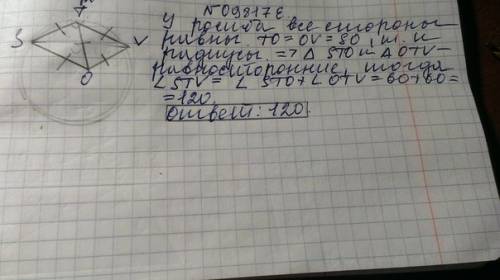 N 09817E
У ромба все стороны
равны TO = OV = SO, т. к
радиусы => Δ STO и Δ OTV -
равносторонние, тогда
∠STV = ∠ STO + ∠ OTV = 60+60=
=120
Ответ: 120
T
S
V
O